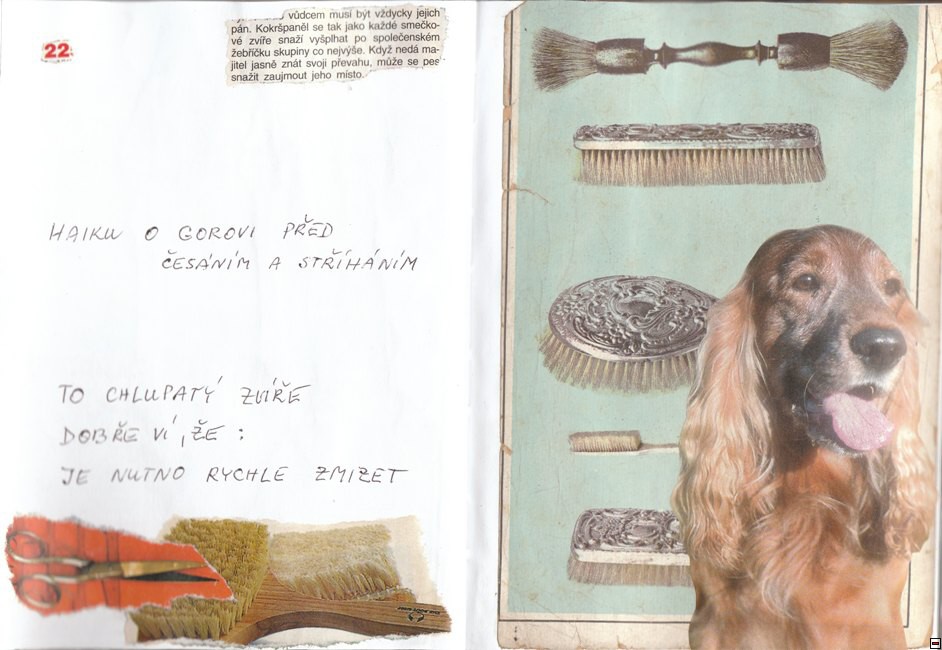 22.
vůdcem musí být vždycky jejich
pán. Kokršpaněl se tak jako každé smečko-
vé zvíře snaží vyšplhat po společenském
žebříčku skupiny co nejvýše. Když nedá ma-
jitel jasně znát svoji převahu, může se pes
snažit zaujmout jeho místo.
HAIKU O GOROVI PŘED
ČESÁNÍM A STŘÍHÁNÍM
TO CHLUPATÝ ZVÍŘE
DOBŘE VÍ, ŽE:
JE NUTNO RYCHLE ZMIZET